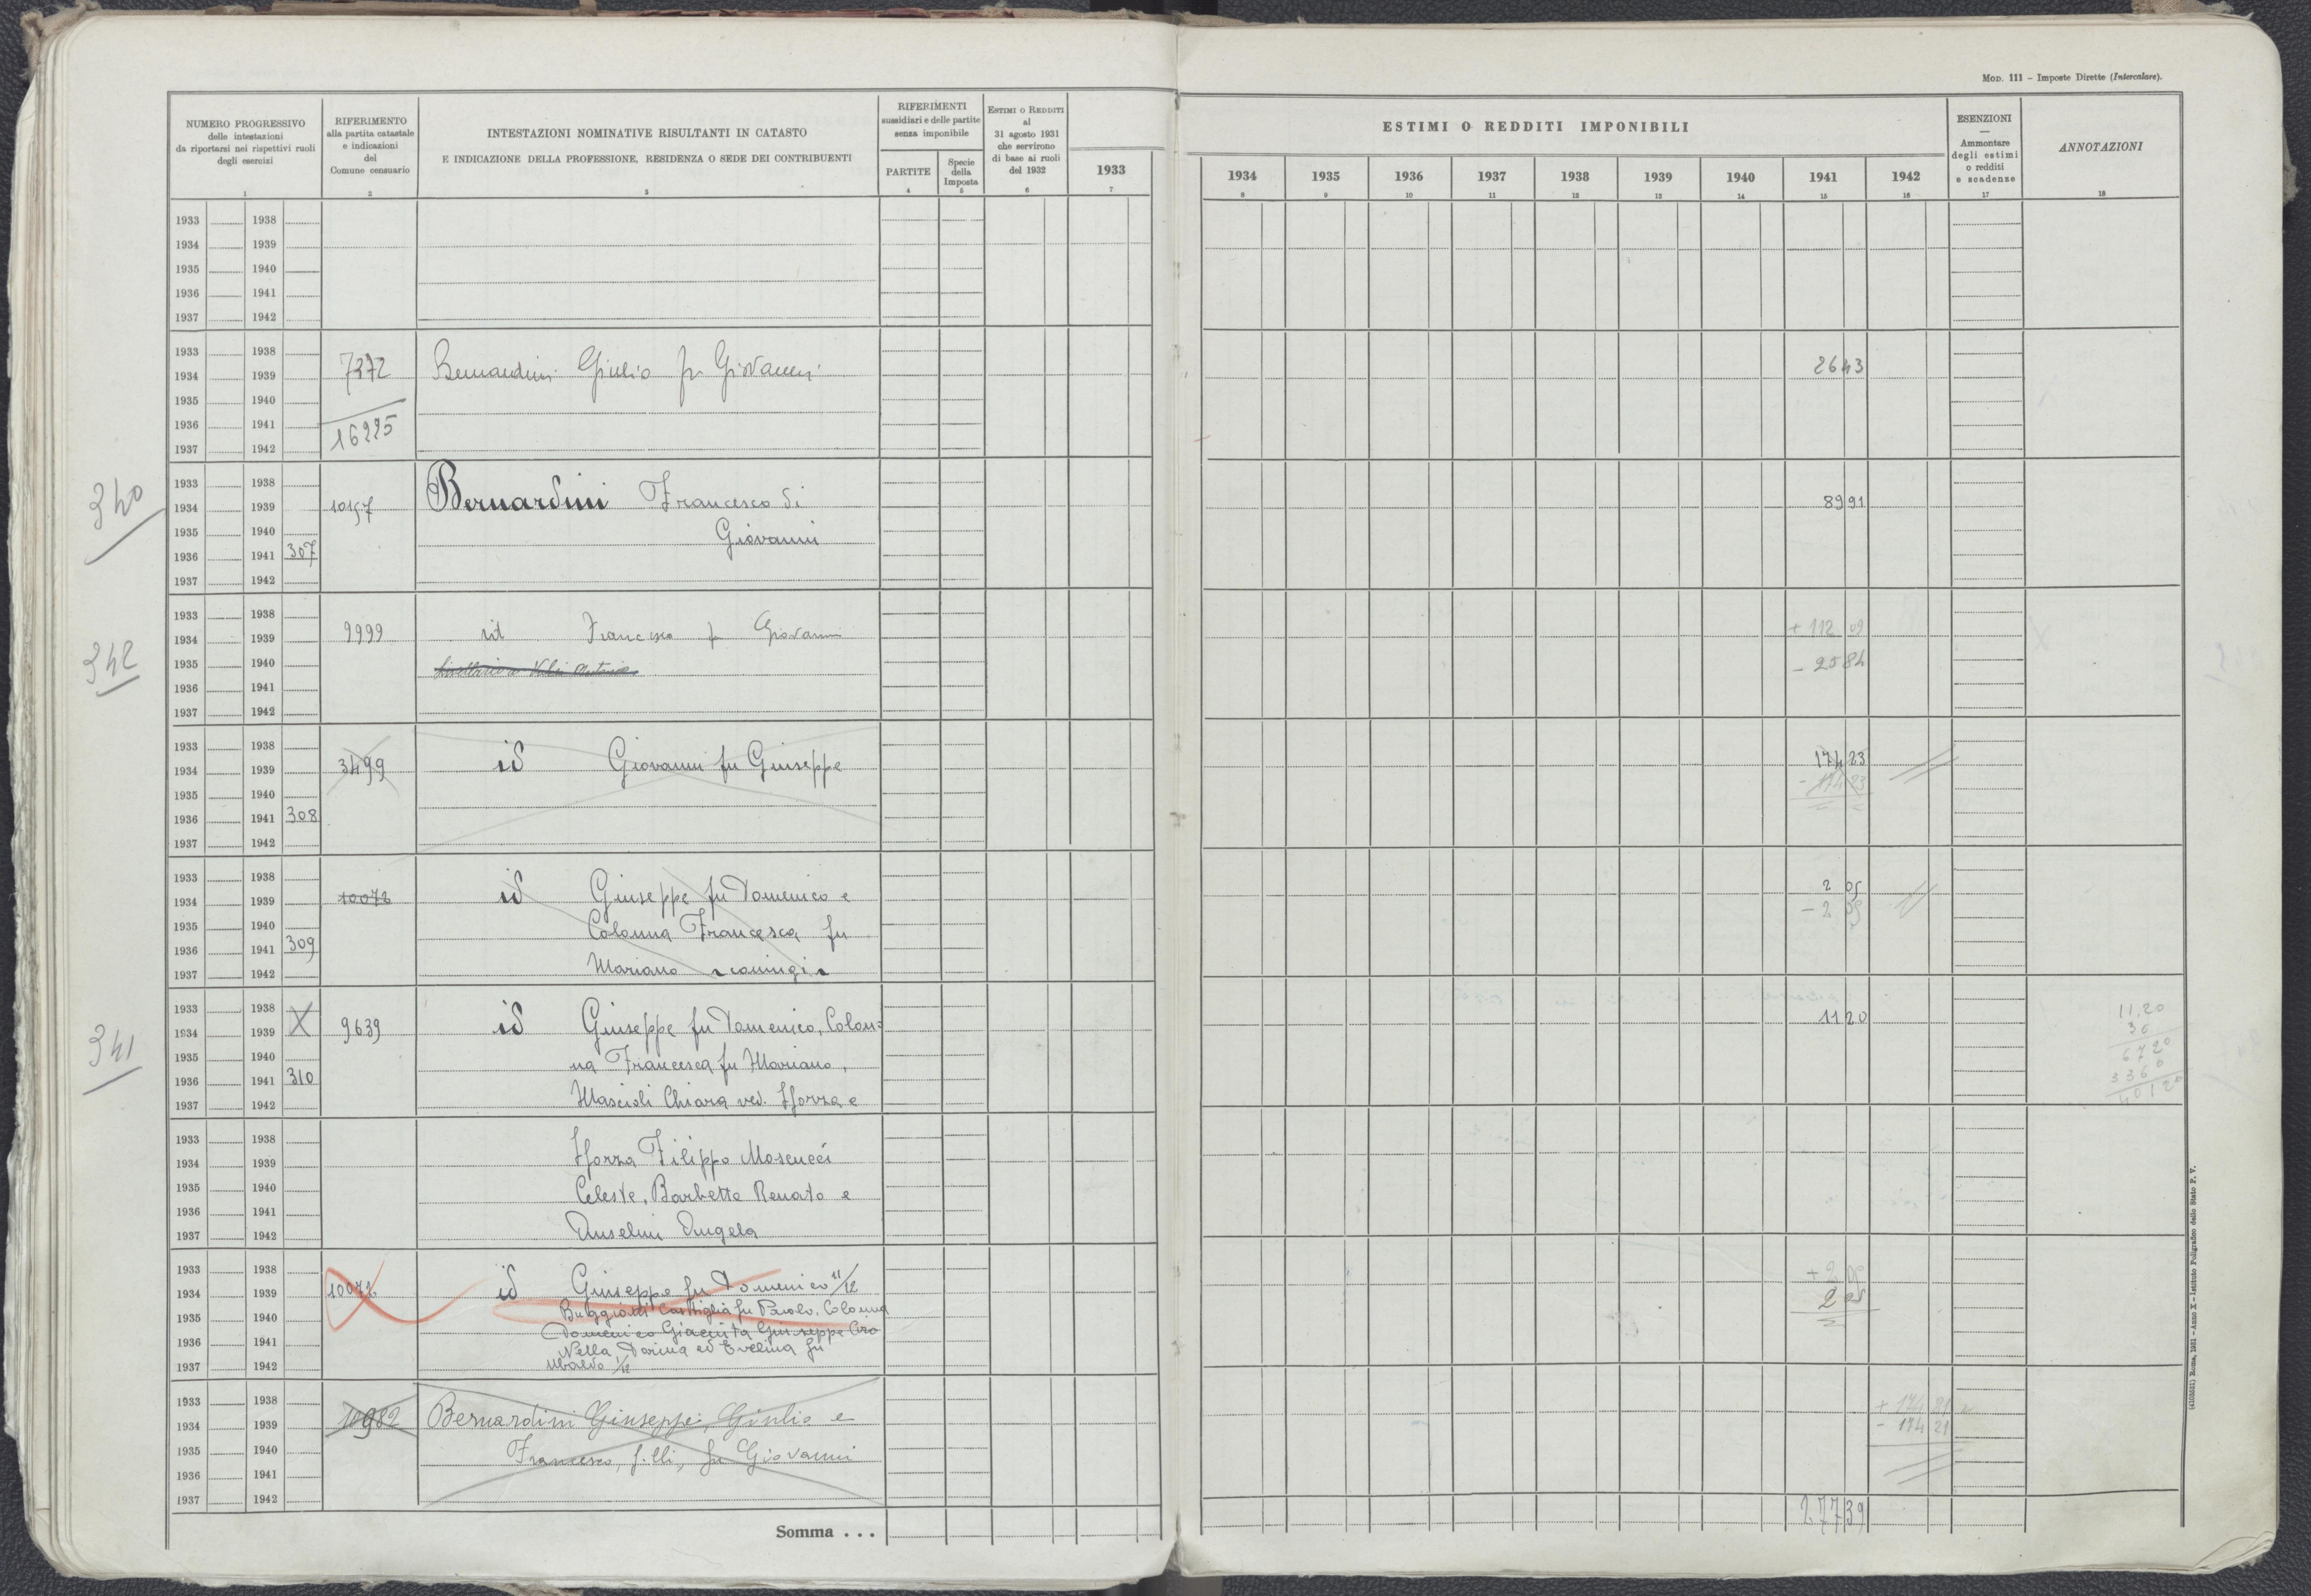 MOD. 111 – Imposte Dirette (Intercalare).
NUMERO PROGRESSIVO
delle intestazioni
da riportarsi nei rispettivi ruoli
degli esercizi
1
RIFERIMENTO
alla partita catastale
e indicazioni
del
Comune censuario
2
INTESTAZIONI NOMINATIVE RISULTANTI IN CATASTO
E INDICAZIONE DELLA PROFESSIONE, RESIDENZA O SEDE DEI CONTRIBUENTI
3
RIFERIMENTI
sussidiari e delle partite
senza imponibile
PARTITE
4
Specie
della
Imposta
5
ESTIMI O REDDITI
al
31 agosto 1931
che servirono
di base ai ruoli
del 1932
6
1933
7
ESTIMI O REDDITI IMPONIBILI
1934 1935 1936 1937 1938 1939 1940 1941 1942
8 9 10 11 12 13 14 15 16
ESENZIONI
—
Ammontare
degli estimi
o redditi
e scadenze
17
ANNOTAZIONI
18
1933 1938
1934 1939
1935 1940
1936 1941
1937 1942
1933 1938
1934 1939 7272 Bernardini Giulio fu Giovanni 2643
1935 1940
1936 1941 16225
1937 1942
340
1933 1938
1934 1939 10157 Bernardini Francesco di 8991
1935 1940 Giovanni
1936 1941 307
1937 1942
342
1933 1938
1934 1939 9999 id Francesco fu Giovanni + 112 09
1935 1940 - 2584
1936 1941
1937 1942
1933 1938
1934 1939 3499 id Giovanni fu Giuseppe 174 23
1935 1940 - 174 23
1936 1941 308
1937 1942
1933 1938
1934 1939 10072 id Giuseppe fu Domenico e 2 05
1935 1940 Colonna Francesca fu - 2 05
1936 1941 309
1937 1942 Mariano coniugi
341
1933 1938 X
1934 1939 9639 id Giuseppe fu Domenico, Colon= 1120
1935 1940 na Francesca fu Mariano,
1936 1941 310
1937 1942 Mascioli Chiara ved. Sforza e
11,20
36
6720
3360
40120
1933 1938
1934 1939 Sforza Filippo Moscucci
1935 1940 Celeste, Barbetta Renato e
1936 1941
1937 1942 Anselmi Angela
1933 1938 + 2 05
1934 1939 10072 id Giuseppe fu Domenico 11/12 2 05
1935 1940 fu Paolo, Colonna
Domenico Giacinta Giuseppe Ciro
1936 1941 Nella Dorina ed Evelina fu
1937 1942 Ubaldo 1/12
1933 1938
1934 1939 10982 Bernardini Giuseppe, Giulio e + 174 21
1935 1940 Francesco, f.lli, fu Giovanni - 174 21
1936 1941
1937 1942
Somma . . . 27739
(4103621) Roma, 1931 – Anno X – Istituto Poligrafico dello Stato P. V.